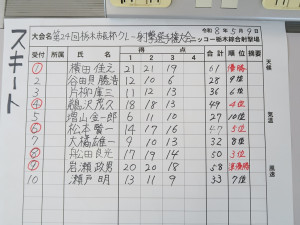 スキート
令和 8年 5月 9日
大会名 第24回栃木県郡クレー射撃選手権大会
ニッコー栃木綜合射撃場
受付 所属 氏名 得点 合計 順位 摘要
1 2 3 4
① 横田佳之 21 21 19 61 優勝
2 谷田貝勝治 12 6 10 28 9位
3 片柳庫三 12 12 12 36 6位
④ 鵜沢茂久 18 13 18 49 4位
5 増山金一郎 6 11 10 27 10位
⑥ 松本賢一 14 17 16 47 5位
7 大橋雄一 9 13 10 32 8位
⑧ 舩田良光 17 19 14 50 3位
⑨ 岩瀬政男 20 20 18 58 準優勝
10 瀬戸明 13 11 9 33 7位
天候
気温
風速